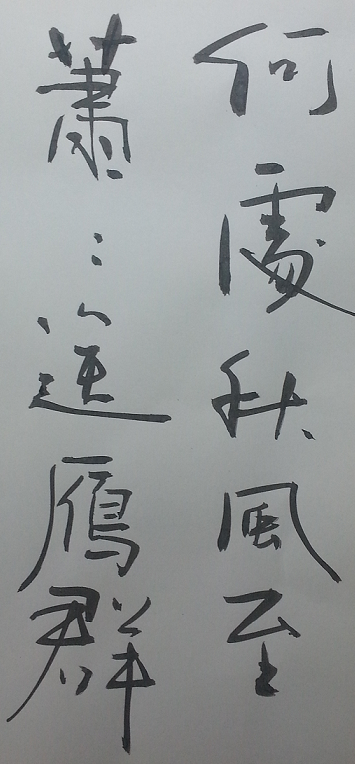 何處秋風至
蕭〻送雁群